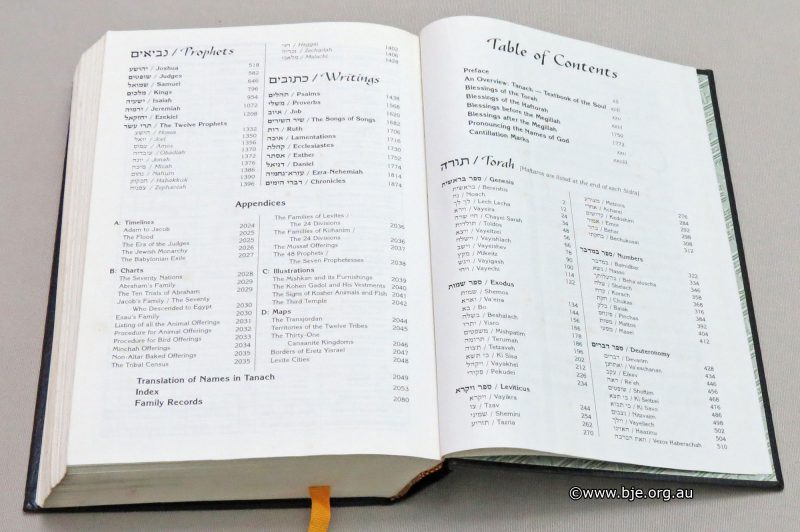 Table of Contents
Preface
An Overview: Tanach — Textbook of the Soul
Blessings of the Torah
Blessings of the Haftarah
Blessings before the Megillah
Blessings after the Megillah
Pronouncing the Names of God
Cantillation Marks
תורה / Torah [Haftaros are listed at the end of each Sidra]
ספר בראשית / Genesis
בראשית / Bereishis
נח / Noach
לך לך / Lech Lecha
וירא / Vayeira
חיי שרה / Chayei Sarah
תולדות / Toldos
ויצא / Vayeitzei
וישלח / Vayishlach
וישב / Vayeishev
מקץ / Mikeitz
ויגש / Vayigash
ויחי / Vayechi
ספר שמות / Exodus
שמות / Shemos
וארא / Va'eira
בא / Bo
בשלח / Beshalach
יתרו / Yisro
משפטים / Mishpatim
תרומה / Terumah
תצוה / Tetzaveh
כי תשא / Ki Sisa
ויקהל / Vayakhel
פקודי / Pekudei
ספר ויקרא / Leviticus
ויקרא / Vayikra
צו / Tzav
שמיני / Shemini
תזריע / Tazria
מצורע / Metzora
אחרי / Acharei
קדושים / Kedoshim
אמור / Emor
בהר / Behar
בחקתי / Bechukosai
ספר במדבר / Numbers
במדבר / Bamidbar
נשא / Nasso
בהעלותך / Beha'aloscha
שלח / Shelach
קרח / Korach
חקת / Chukas
בלק / Balak
פינחס / Pinchas
מטות / Mattos
מסעי / Masei
ספר דברים / Deuteronomy
דברים / Devarim
ואתחנן / Va'eschanan
עקב / Eikev
ראה / Re'eh
שופטים / Shoftim
כי תצא / Ki Seitzei
כי תבוא / Ki Savo
נצבים / Nitzavim
וילך / Vayeilech
האזינו / Haazinu
וזאת הברכה / Vezos Haberachah
נביאים / Prophets
יהושע / Joshua 518
שופטים / Judges 582
שמואל / Samuel 646
מלכים / Kings 796
ישעיה / Isaiah 954
ירמיה / Jeremiah 1072
יחזקאל / Ezekiel 1208
תרי עשר / The Twelve Prophets
הושע / Hosea 1332
יואל / Joel 1350
עמוס / Amos
עובדיה / Obadiah
יונה / Jonah
מיכה / Micah
נחום / Nahum
חבקוק / Habakkuk
צפניה / Zephaniah 1396
חגי / Haggai 1402
זכריה / Zechariah 1406
מלאכי / Malachi
כתובים / Writings
תהלים / Psalms 1438
משלי / Proverbs 1568
איוב / Job 1620
שיר השירים / The Songs of Songs 1682
רות / Ruth
איכה / Lamentations
קהלת / Ecclesiastes
אסתר / Esther 1752
דניאל / Daniel 1774
עזרא-נחמיה / Ezra-Nehemiah 1814
דברי הימים / Chronicles 1874
Appendices
A: Timelines
Adam to Jacob 2024
The Flood 2025
The Era of the Judges 2025
The Jewish Monarchy 2026
The Babylonian Exile 2027
B: Charts
The Seventy Nations 2028
Abraham's Family 2029
The Ten Trials of Abraham 2029
Jacob's Family / The Seventy
Who Descended to Egypt 2030
Esau's Family
Listing of all the Animal Offerings
Procedure for Animal Offerings
Procedure for Bird Offerings
Minchah Offerings
Non-Altar Baked Offerings 2035
The Tribal Census 2035
The Families of Levites /
The 24 Divisions 2036
The Families of Kohanim /
The 24 Divisions 2036
The Mussaf Offerings 2038
The 48 Prophets /
The Seven Prophetesses 2038
C: Illustrations
The Mishkan and its Furnishings 2039
The Kohen Gadol and His Vestments 2040
The Signs of Kosher Animals and Fish 2041
The Third Temple 2042
D: Maps
The Transjordan 2044
Territories of the Twelve Tribes 2045
The Thirty-One
Canaanite Kingdoms 2046
Borders of Eretz Yisrael 2047
Levite Cities 2048
Translation of Names in Tanach 2049
Index 2053
Family Records 2080
©www.bje.org.au